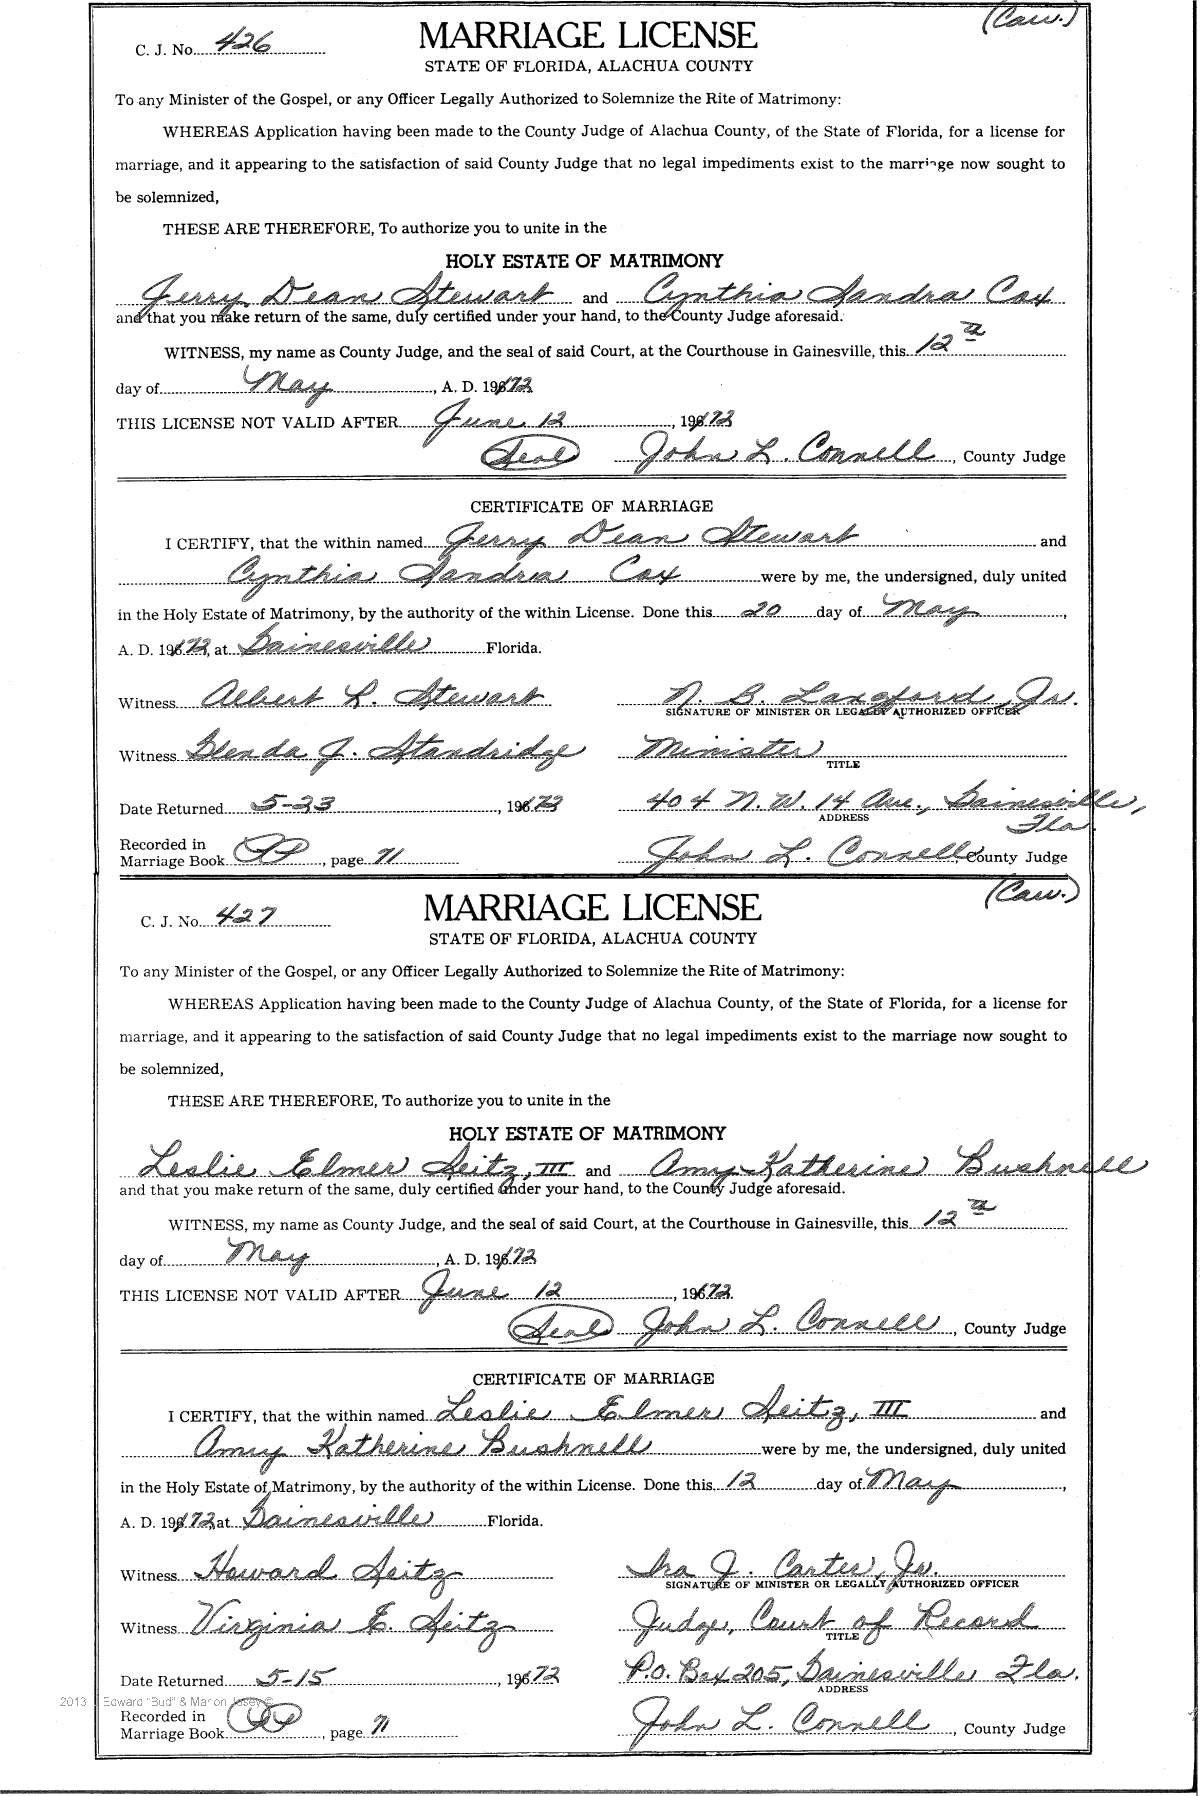 (Cau.)
C. J. No. 426
MARRIAGE LICENSE
STATE OF FLORIDA, ALACHUA COUNTY
To any Minister of the Gospel, or any Officer Legally Authorized to Solemnize the Rite of Matrimony:
WHEREAS Application having been made to the County Judge of Alachua County, of the State of Florida, for a license for
marriage, and it appearing to the satisfaction of said County Judge that no legal impediments exist to the marriage now sought to
be solemnized,
THESE ARE THEREFORE, To authorize you to unite in the
HOLY ESTATE OF MATRIMONY
Jerry Dean Stewart and Cynthia Sandra Cox
and that you make return of the same, duly certified under your hand, to the County Judge aforesaid.
WITNESS, my name as County Judge, and the seal of said Court, at the Courthouse in Gainesville, this 12th
day of May, A. D. 1972
THIS LICENSE NOT VALID AFTER June 12, 1972
Seal John L. Connell, County Judge
CERTIFICATE OF MARRIAGE
I CERTIFY, that the within named Jerry Dean Stewart and
Cynthia Sandra Cox were by me, the undersigned, duly united
in the Holy Estate of Matrimony, by the authority of the within License. Done this 20 day of May,
A. D. 1972, at Gainesville Florida.
Witness Albert L. Stewart N. B. Langford, Jr.
SIGNATURE OF MINISTER OR LEGALLY AUTHORIZED OFFICER
Witness Glenda J. Standridge Minister
TITLE
Date Returned 5-23, 1972 404 N. W. 14 Ave., Gainesville, Fla.
ADDRESS
Recorded in
Marriage Book , page 71 John L. Connell County Judge
(Cau.)
C. J. No. 427
MARRIAGE LICENSE
STATE OF FLORIDA, ALACHUA COUNTY
To any Minister of the Gospel, or any Officer Legally Authorized to Solemnize the Rite of Matrimony:
WHEREAS Application having been made to the County Judge of Alachua County, of the State of Florida, for a license for
marriage, and it appearing to the satisfaction of said County Judge that no legal impediments exist to the marriage now sought to
be solemnized,
THESE ARE THEREFORE, To authorize you to unite in the
HOLY ESTATE OF MATRIMONY
Leslie Elmer Seitz, III and Amy Katherine Bushnell
and that you make return of the same, duly certified under your hand, to the County Judge aforesaid.
WITNESS, my name as County Judge, and the seal of said Court, at the Courthouse in Gainesville, this 12th
day of May, A. D. 1972
THIS LICENSE NOT VALID AFTER June 12, 1972.
Seal John L. Connell, County Judge
CERTIFICATE OF MARRIAGE
I CERTIFY, that the within named Leslie Elmer Seitz, III and
Amy Katherine Bushnell were by me, the undersigned, duly united
in the Holy Estate of Matrimony, by the authority of the within License. Done this 12 day of May,
A. D. 1972, at Gainesville Florida.
Witness Howard Seitz Ira J. Carter, Jr.
SIGNATURE OF MINISTER OR LEGALLY AUTHORIZED OFFICER
Witness Virginia E. Seitz Judge, Court of Record
TITLE
Date Returned 5-15, 1972 P.O. Box 205, Gainesville Fla.
ADDRESS
2013 Edward "Bud" & Marion Josey ©
Recorded in
Marriage Book , page 71 John L. Connell, County Judge